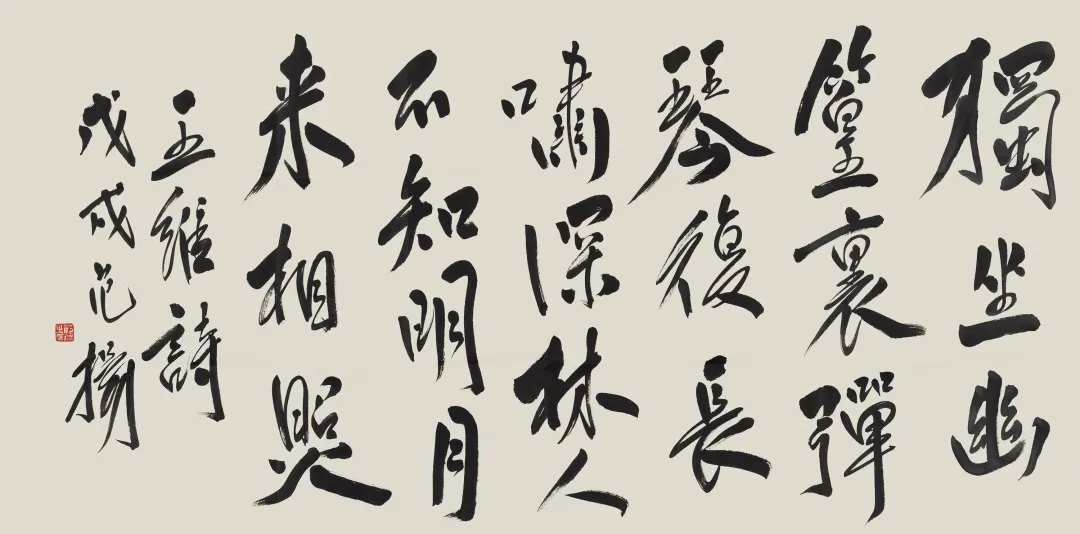 獨坐幽
篁裏彈
琴復長
嘯深林人
不知明月
来相照
王維詩
戊戌范揚